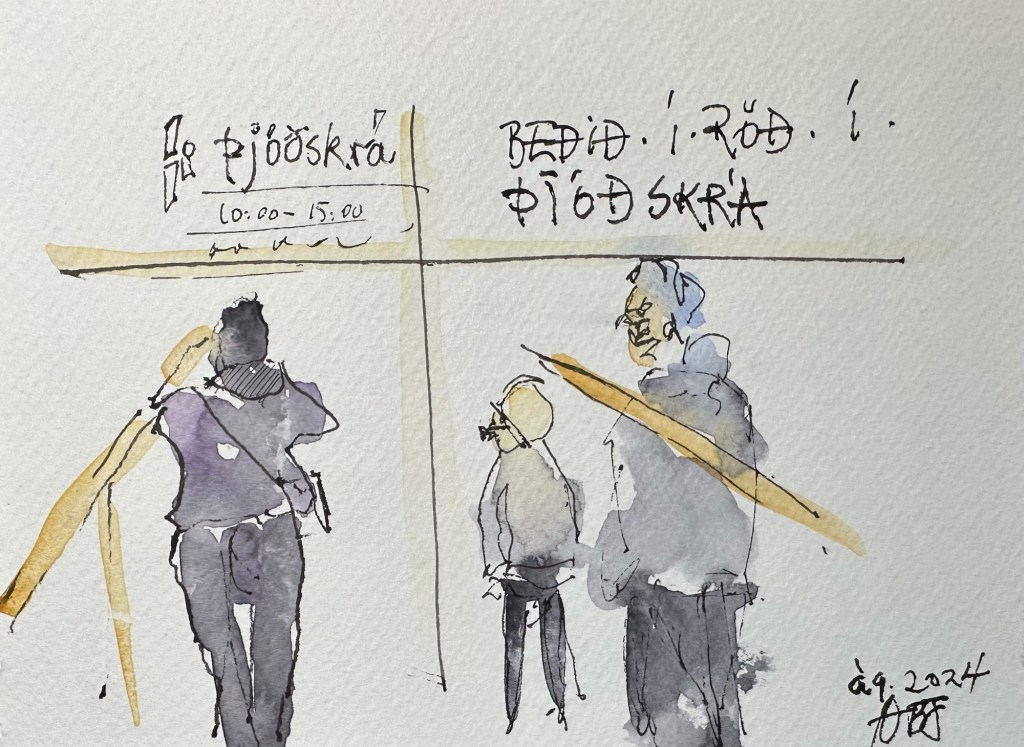 Þjóðskrá
10:00 – 15:00
BEÐIÐ . Í . RÖÐ . Í .
ÞJÓÐSKRÁ
ág. 2024